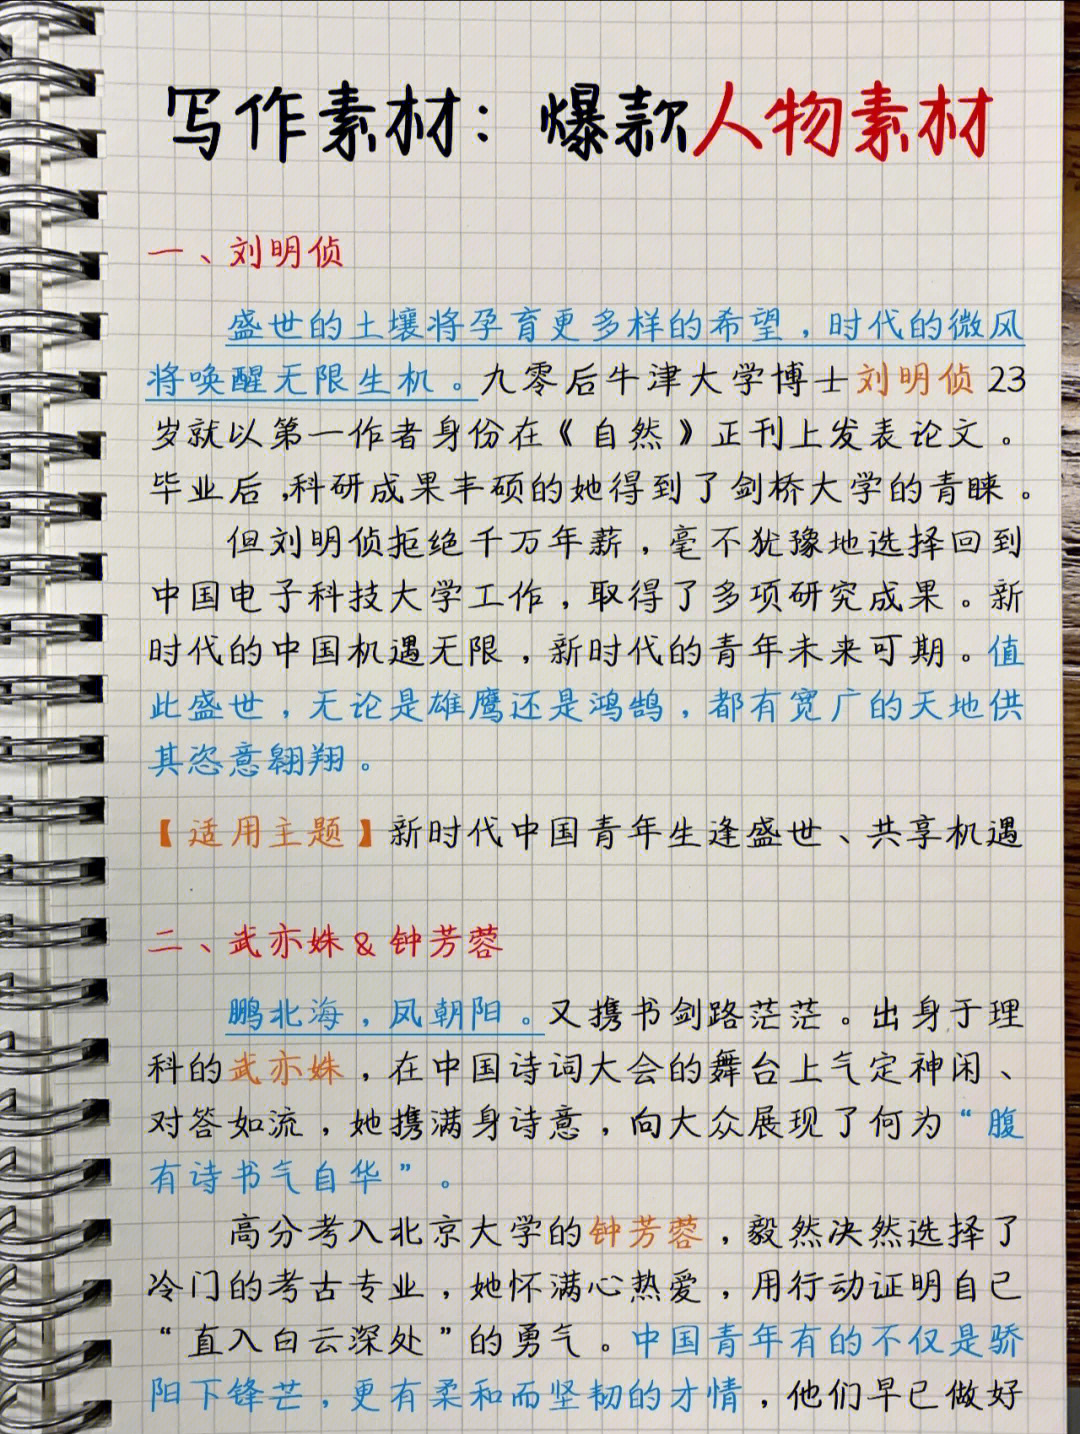 写作素材：爆款人物素材
一、刘明侦
盛世的土壤将孕育更多样的希望，时代的微风
将唤醒无限生机。九零后牛津大学博士刘明侦23
岁就以第一作者身份在《自然》正刊上发表论文。
毕业后,科研成果丰硕的她得到了剑桥大学的青睐。
但刘明侦拒绝千万年薪，毫不犹豫地选择回到
中国电子科技大学工作，取得了多项研究成果。新
时代的中国机遇无限，新时代的青年未来可期。值
此盛世，无论是雄鹰还是鸿鹄，都有宽广的天地供
其恣意翱翔。
【适用主题】新时代中国青年生逢盛世、共享机遇
二、武亦姝&钟芳蓉
鹏北海，凤朝阳。又携书剑路茫茫。出身于理
科的武亦姝，在中国诗词大会的舞台上气定神闲、
对答如流，她携满身诗意，向大众展现了何为“腹
有诗书气自华”。
高分考入北京大学的钟芳蓉，毅然决然选择了
冷门的考古专业，她怀满心热爱，用行动证明自己
“直入白云深处”的勇气。中国青年有的不仅是骄
阳下锋芒，更有柔和而坚韧的才情，他们早已做好